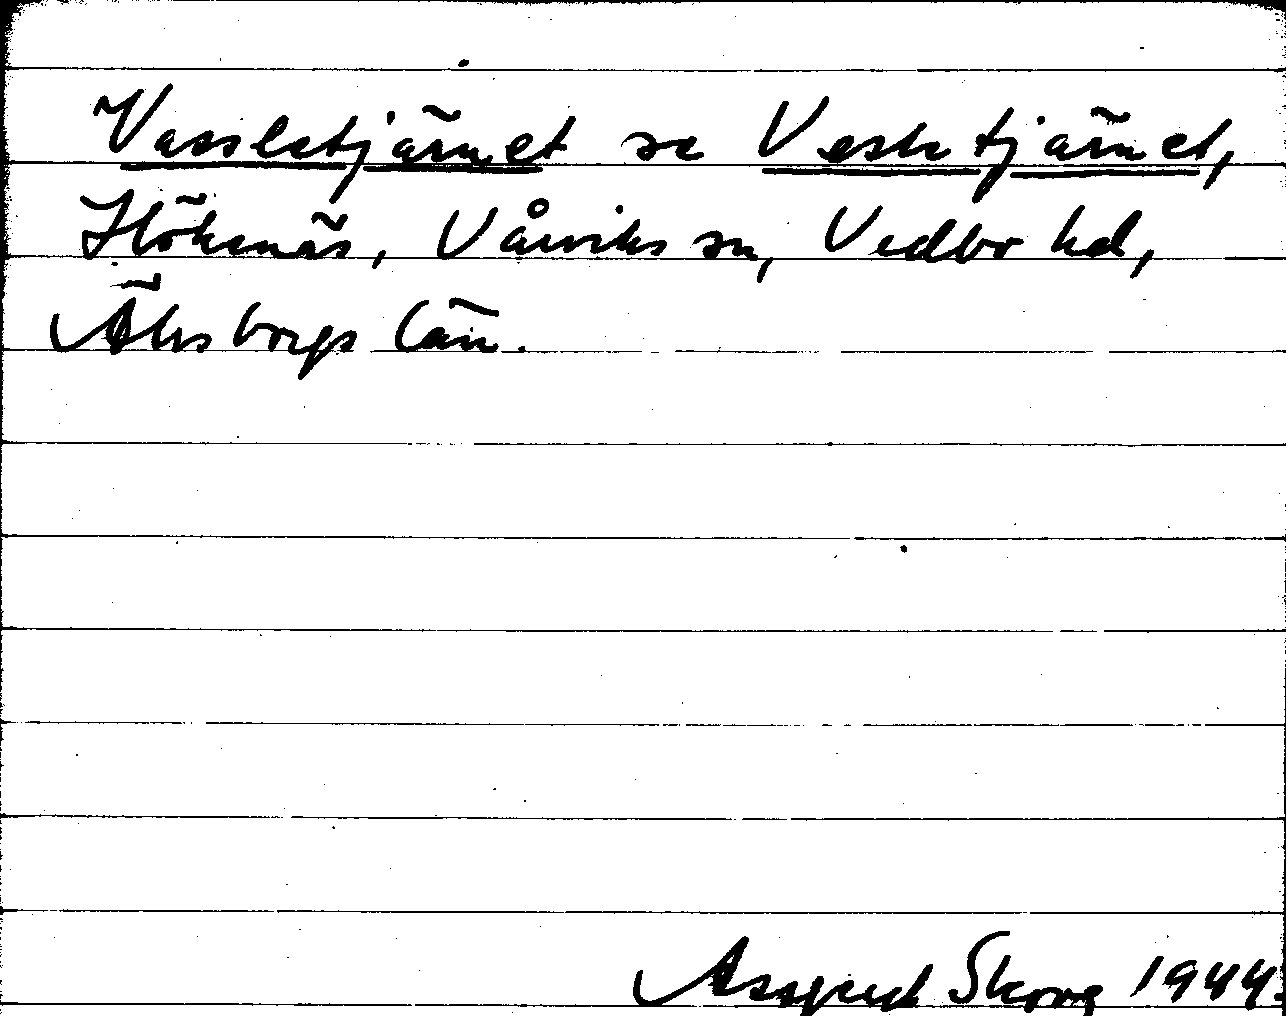 Vassletjärnet se Vesletjärnet,
Höksnäs, Vårviks sn, Vedbo hd,
Älvsborgs län.
Assgerd Skoog 1944.